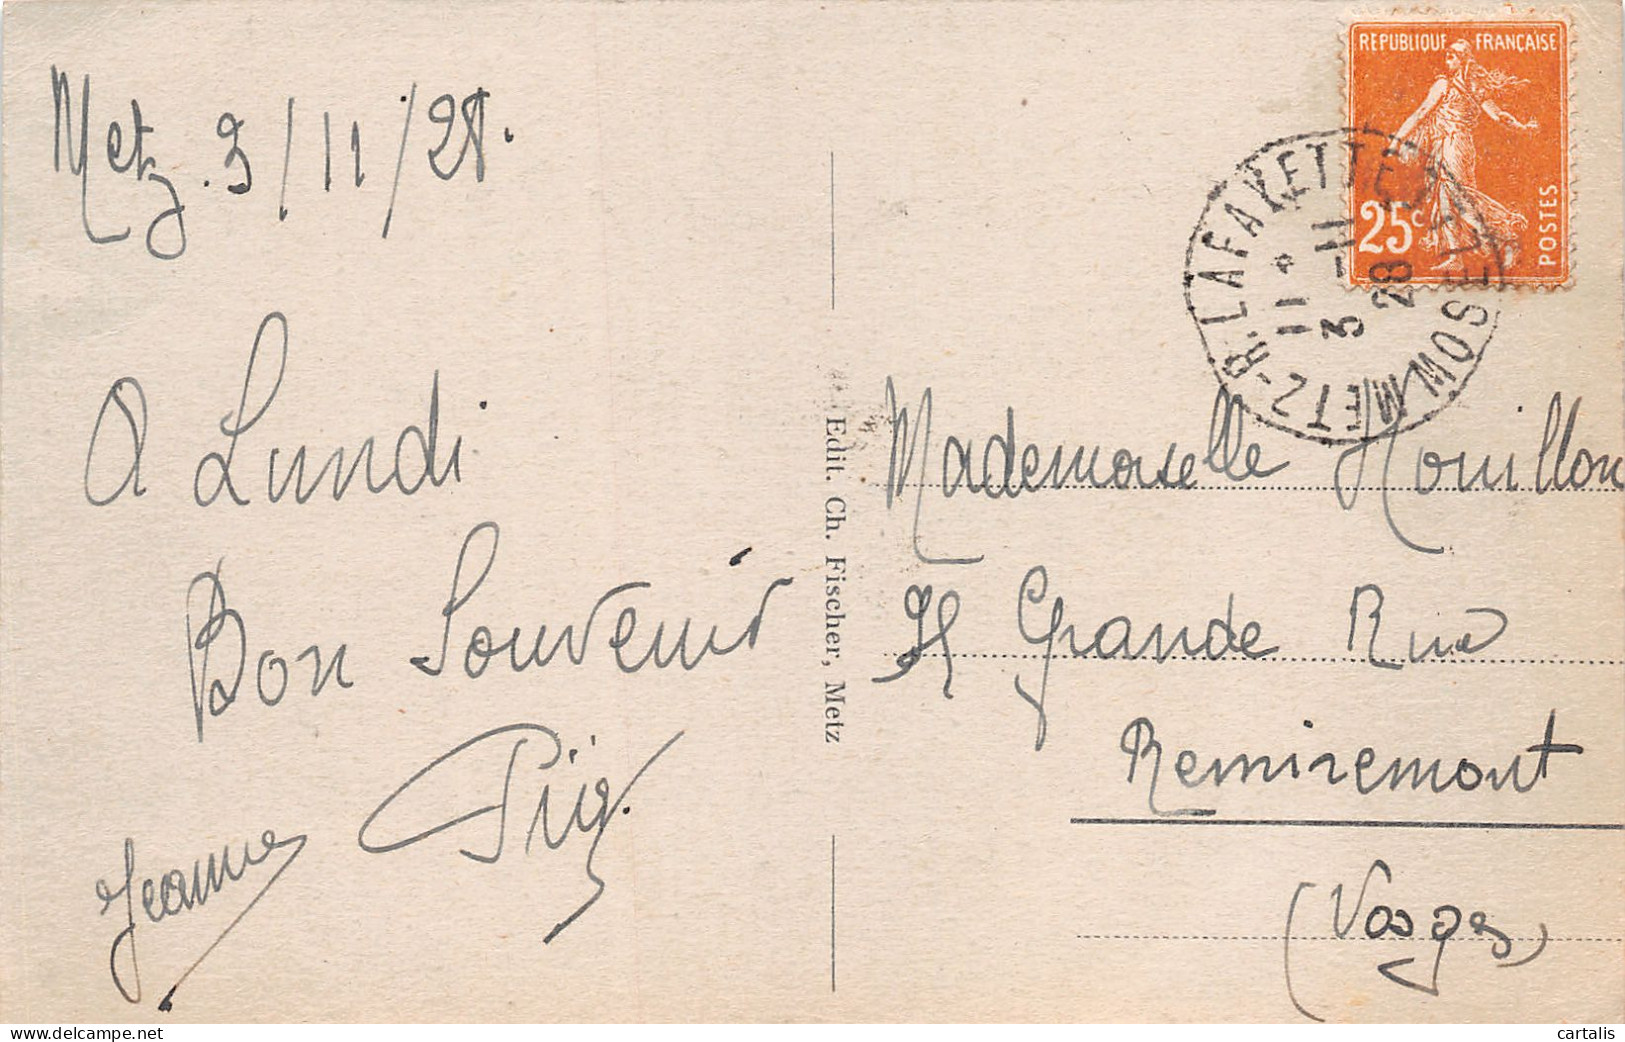 Metz. 3/11/28.
A Lundi
Bon Souvenir
Jeanne
Edit. Ch. Fischer, Metz
REPUBLIQUE FRANÇAISE
25c
POSTES
METZ-R. LAFAYETTE
MOSELLE
11 *
3 -11
28
Mademoiselle
Grande Rue
Remiremont
(Vosges)
cartalis